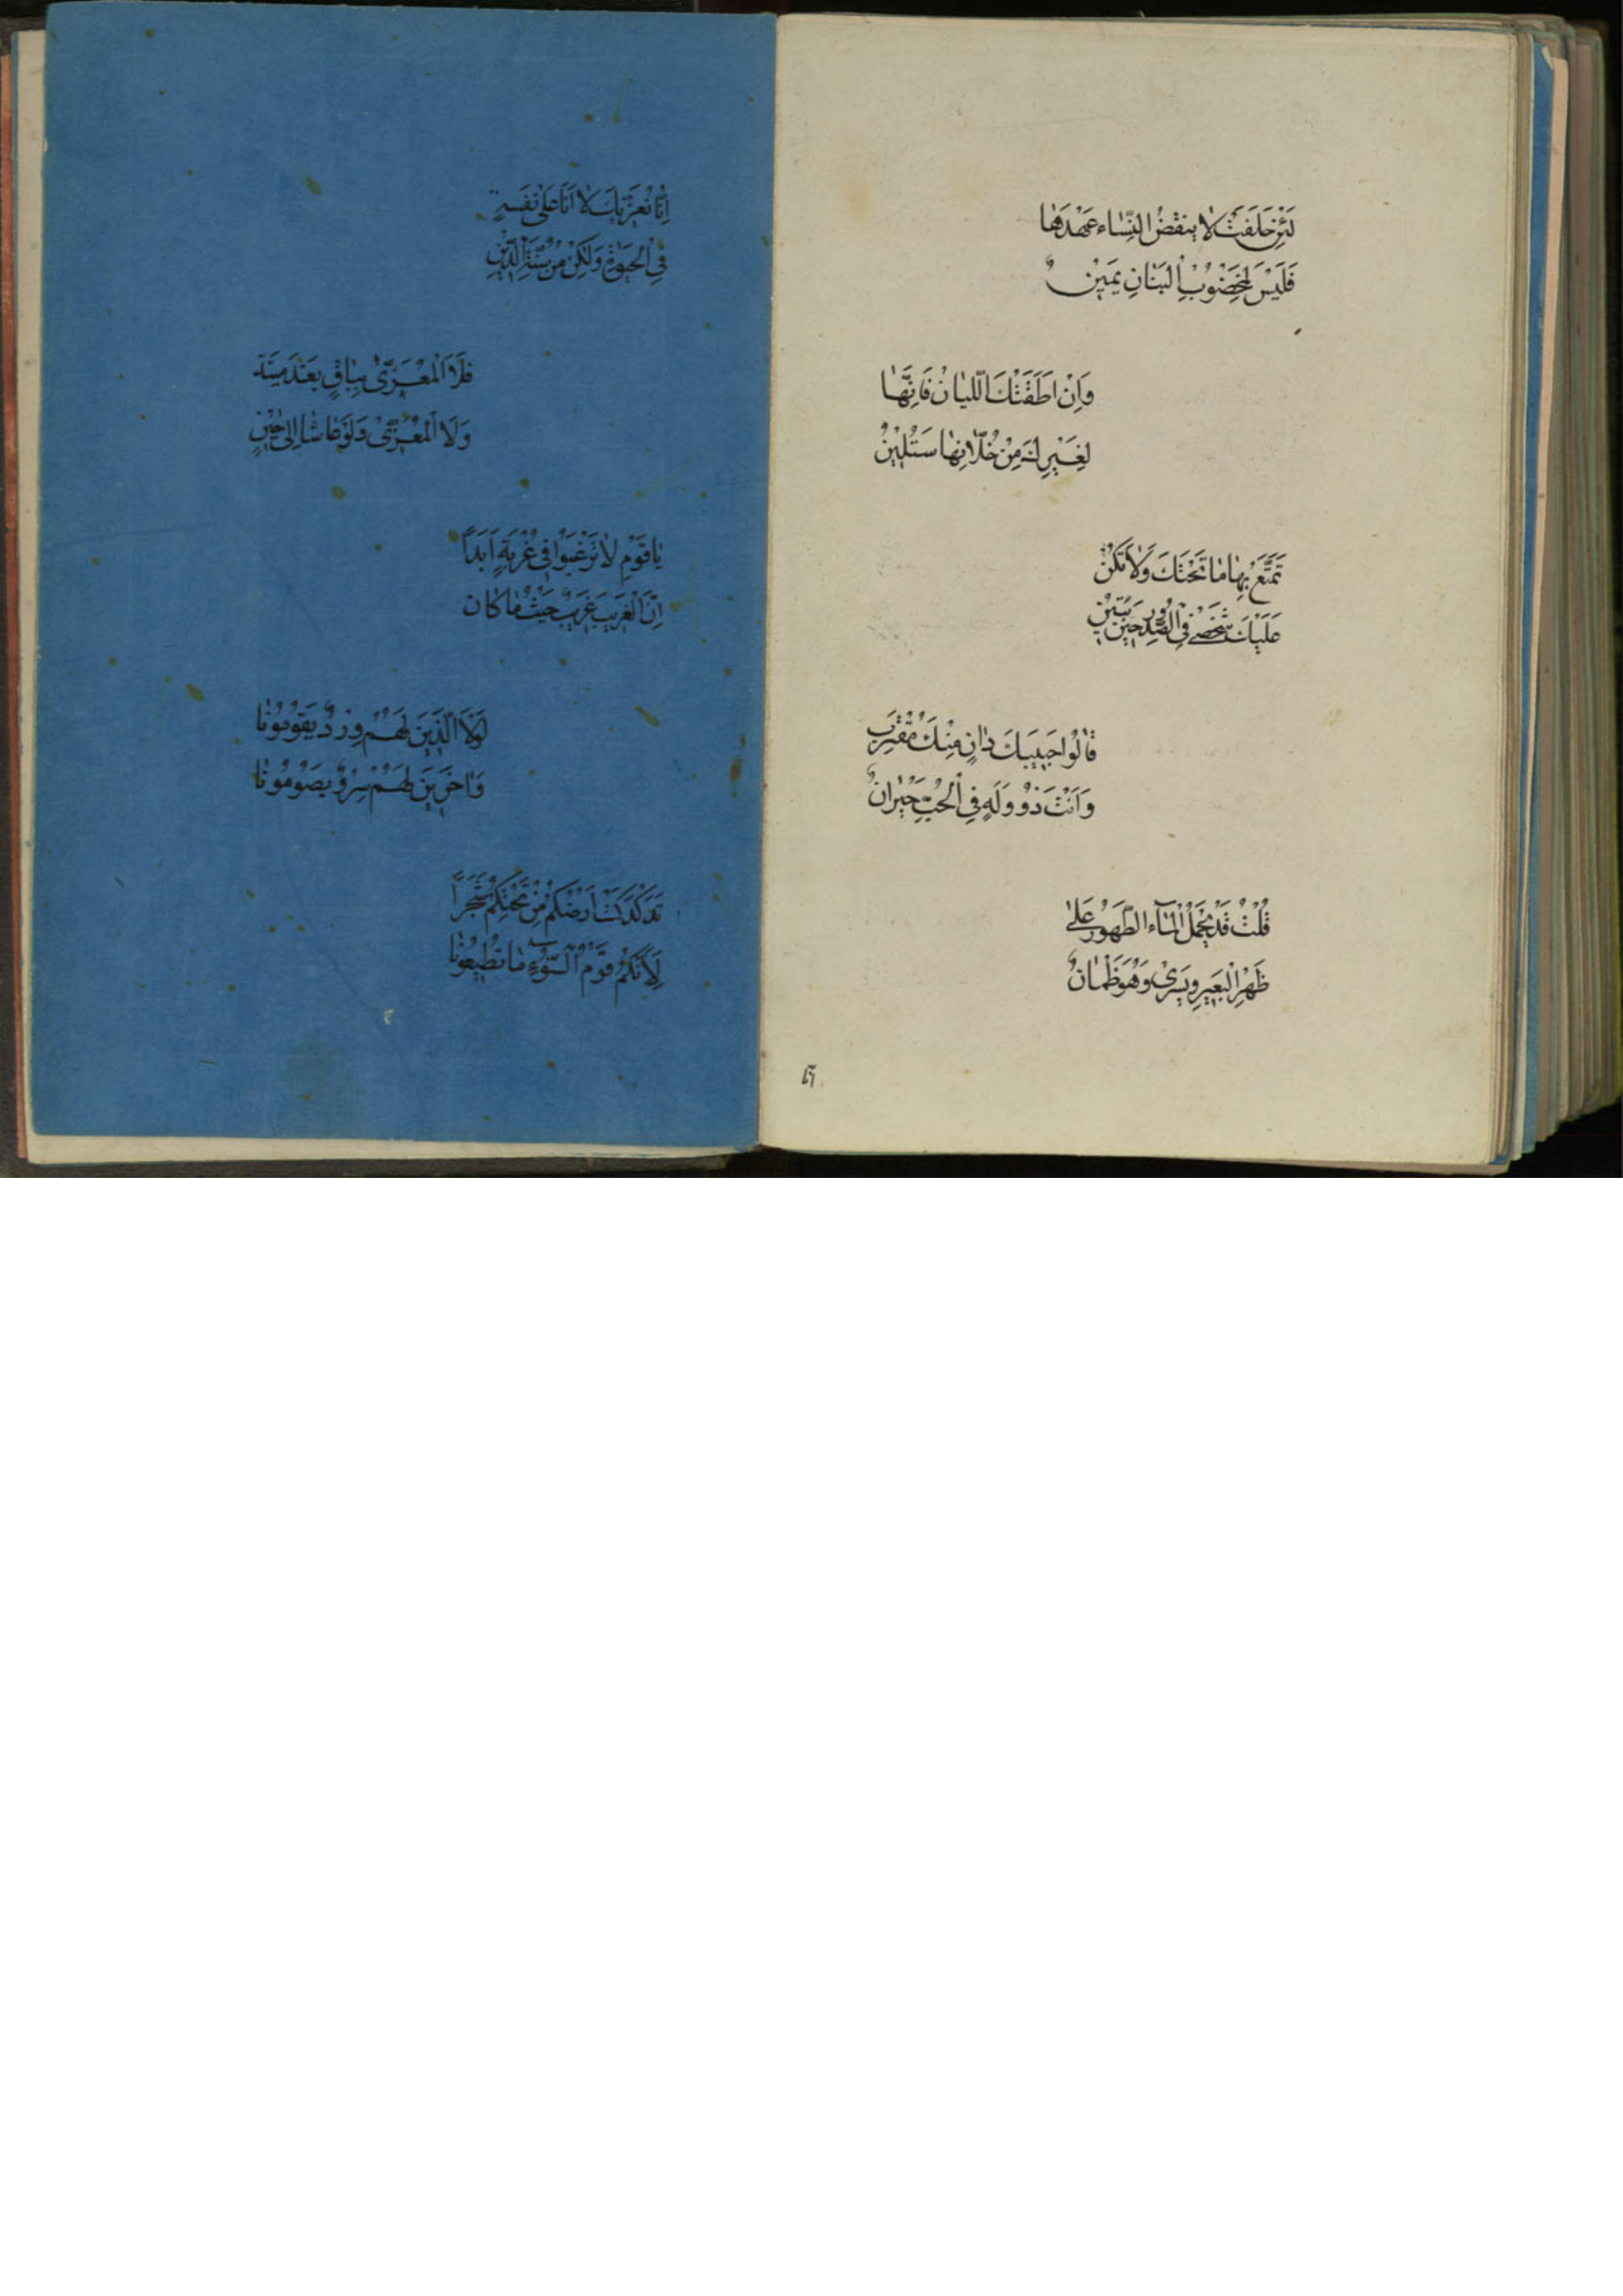 لَئِنْ حَلَفَتْ لا ينقضُ النِّسَاء عَهْدَهَا
فَلَيْسَ لِخَضُوْبِ الْبَنَانِ يَمِيْنٌ
وَاِنْ اَطَقَتْكَ اللّيَانُ فَاِنَّهَا
لِغَيْرِكَ مِنْ خُلّانِهَا سَتُلِيْنُ
تَمَتَّعْ بِهَا مَا تَحْتَكَ وَلَا تَكُنْ
عَلَيْكَ شَخْصٌ فِي الصُّدُورِ حِيْنَ يَبِيْنُ
قَالُوا حَبِيبَكَ دَانٍ مِنْكَ مُقْتَرِب
وَاَنْتَ ذُوْ وَلَهٍ فِي الْحُبِّ حَيْرَانٌ
قُلْتُ قَدْ يَحْمِلُ الْمَآءَ الطَّهُوْرُ عَلَى
ظَهْرِ الْبَعِيْرِ وَيَسْرِىْ وَهُوَ ظَمْاٰنٌ
اِنَّا نُعَزِّيكَ لَا اَنَّا عَلى
فِي الْحَيٰوةِ وَلٰكِنْ مِنْ سُنَّةِ الدِّيْنِ
فَلَا الْمُعَزّٰى بِبَاقٍ بَعْدَ مَيِّتِه
وَلَا الْمُعَزِّىْ وَلَوْ عَاشَا اِلَى حِيْنٍ
يَا قَوْمِ لَا تَرْغَبُوْا فِىْ غُرْبَةٍ اَبَدًا
اِنَّ الْغَرِيْبَ غَرِيْبٌ حَيْثُ مَا كَان
لَوْلَا الَّذِيْنَ لَهُمْ وِرْدٌ يَقُوْمُوْنَا
وَاٰخَرِيْنَ لَهُمْ يَصُوْمُوْنَا
تَدَكْدَكَتْ اَرْضُكُمْ مِنْ تَحْتِكُمْ شَجَرًا
لِاَنَّكُمْ قَوْمُ السُّوْٓءِ مَا تُطِيْعُوْنَا